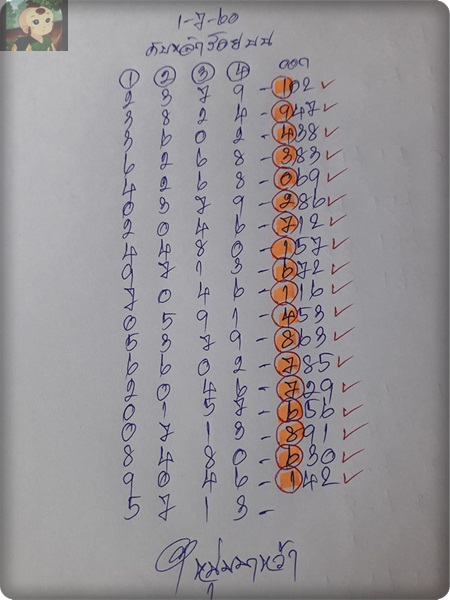 1-7-60
ดับหลักร้อยบน
① ② ③ ④ ออก
2 3 7 9 - 102 ✓
3 8 2 4 - 947 ✓
3 6 0 2 - 438 ✓
6 2 6 8 - 383 ✓
4 2 6 8 - 069 ✓
0 3 7 9 - 286 ✓
2 0 4 6 - 712 ✓
4 4 8 0 - 157 ✓
9 7 1 3 - 672 ✓
7 0 4 6 - 116 ✓
0 5 9 1 - 453 ✓
5 3 7 9 - 863 ✓
6 6 0 2 - 785 ✓
2 0 4 6 - 729 ✓
0 1 5 7 - 656 ✓
0 7 1 3 - 891 ✓
8 4 8 0 - 630 ✓
9 0 4 6 - 142 ✓
5 7 1 3 -